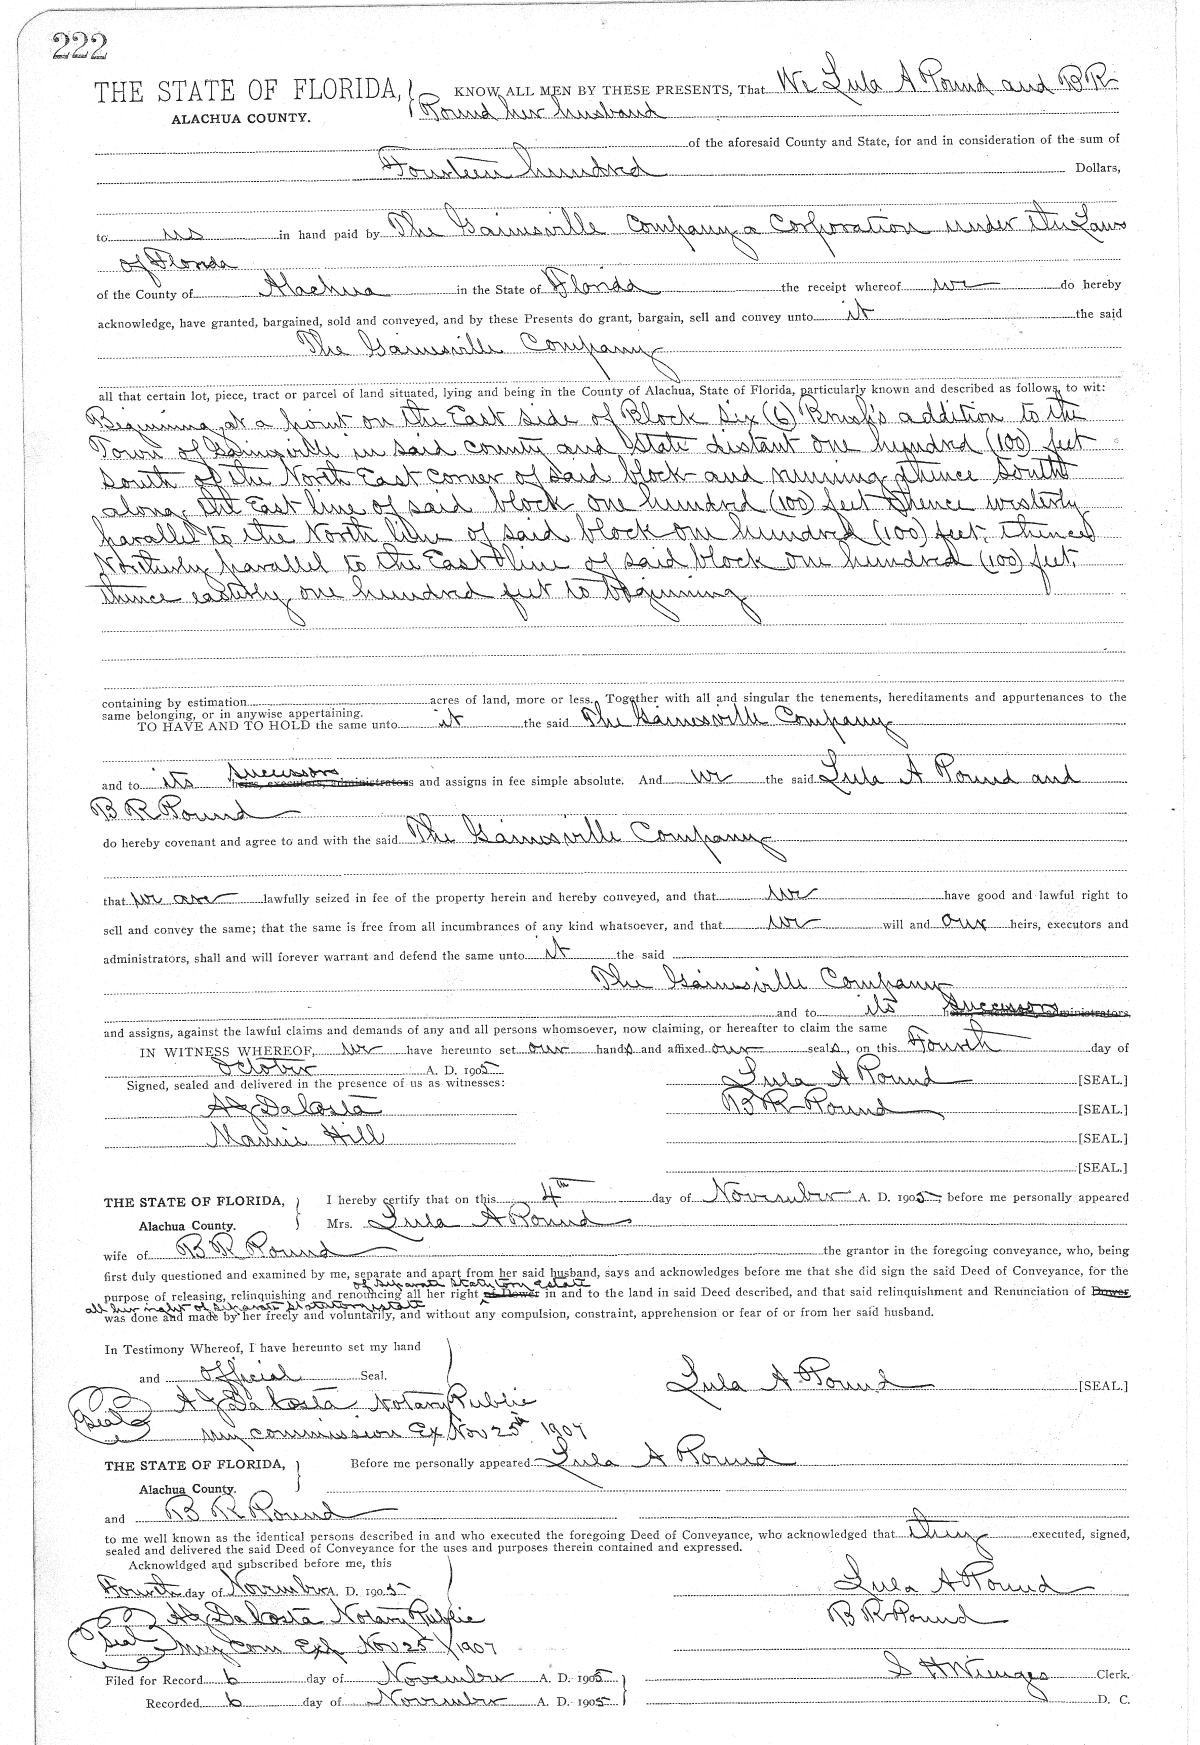 222
THE STATE OF FLORIDA, KNOW ALL MEN BY THESE PRESENTS, That We Lula A Pound and B R
ALACHUA COUNTY. Pound her husband
of the aforesaid County and State, for and in consideration of the sum of
Fourteen hundred Dollars,
to us in hand paid by The Gainesville Company a Corporation under the Laws
of Florida
of the County of Alachua in the State of Florida the receipt whereof we do hereby
acknowledge, have granted, bargained, sold and conveyed, and by these Presents do grant, bargain, sell and convey unto it the said
The Gainesville Company
all that certain lot, piece, tract or parcel of land situated, lying and being in the County of Alachua, State of Florida, particularly known and described as follows, to wit:
Beginning at a point on the East side of Block Six (6) Brush's addition to the
Town of Gainesville in said county and State distant one hundred (100) feet
South of the North East corner of said block and running thence South
along the East line of said block one hundred (100) feet thence westerly
parallel to the North line of said block one hundred (100) feet, thence
Northerly parallel to the East line of said block one hundred (100) feet,
thence easterly one hundred feet to beginning
containing by estimation acres of land, more or less. Together with all and singular the tenements, hereditaments and appurtenances to the
same belonging, or in anywise appertaining.
TO HAVE AND TO HOLD the same unto it the said The Gainesville Company
and to its successors heirs, executors, administrators and assigns in fee simple absolute. And we the said Lula A Pound and
B R Pound
do hereby covenant and agree to and with the said The Gainesville Company
that we are lawfully seized in fee of the property herein and hereby conveyed, and that we have good and lawful right to
sell and convey the same; that the same is free from all incumbrances of any kind whatsoever, and that we will and our heirs, executors and
administrators, shall and will forever warrant and defend the same unto it the said
The Gainesville Company
and to its successors administrators
and assigns, against the lawful claims and demands of any and all persons whomsoever, now claiming, or hereafter to claim the same
IN WITNESS WHEREOF, we have hereunto set our hands and affixed our seals, on this Fourth day of
October A. D. 1905
Signed, sealed and delivered in the presence of us as witnesses: Lula A Pound [SEAL.]
A J DaCosta B R Pound [SEAL.]
Mamie Hill [SEAL.]
[SEAL.]
THE STATE OF FLORIDA, I hereby certify that on this 4th day of November A. D. 1905, before me personally appeared
Alachua County. Mrs. Lula A Pound
wife of B R Pound the grantor in the foregoing conveyance, who, being
first duly questioned and examined by me, separate and apart from her said husband, says and acknowledges before me that she did sign the said Deed of Conveyance, for the
of separate statutory estate
purpose of releasing, relinquishing and renouncing all her right of Dower in and to the land in said Deed described, and that said relinquishment and Renunciation of Dower
all her right of separate statutory estate
was done and made by her freely and voluntarily, and without any compulsion, constraint, apprehension or fear of or from her said husband.
In Testimony Whereof, I have hereunto set my hand
and official Seal. Lula A. Pound [SEAL.]
Seal A J DaCosta Notary Public
My commission Ex Nov 25th 1907
THE STATE OF FLORIDA, Before me personally appeared Lula A Pound
Alachua County.
and B R Pound
to me well known as the identical persons described in and who executed the foregoing Deed of Conveyance, who acknowledged that they executed, signed,
sealed and delivered the said Deed of Conveyance for the uses and purposes therein contained and expressed.
Acknowldged and subscribed before me, this
Fourth day of November A. D. 1905 Lula A Pound
A J DaCosta Notary Public B R Pound
Seal My Com Exp Nov 25 / 1907
Filed for Record 6 day of November A. D. 1905 S H Wienges Clerk.
Recorded 6 day of November A. D. 1905 D. C.